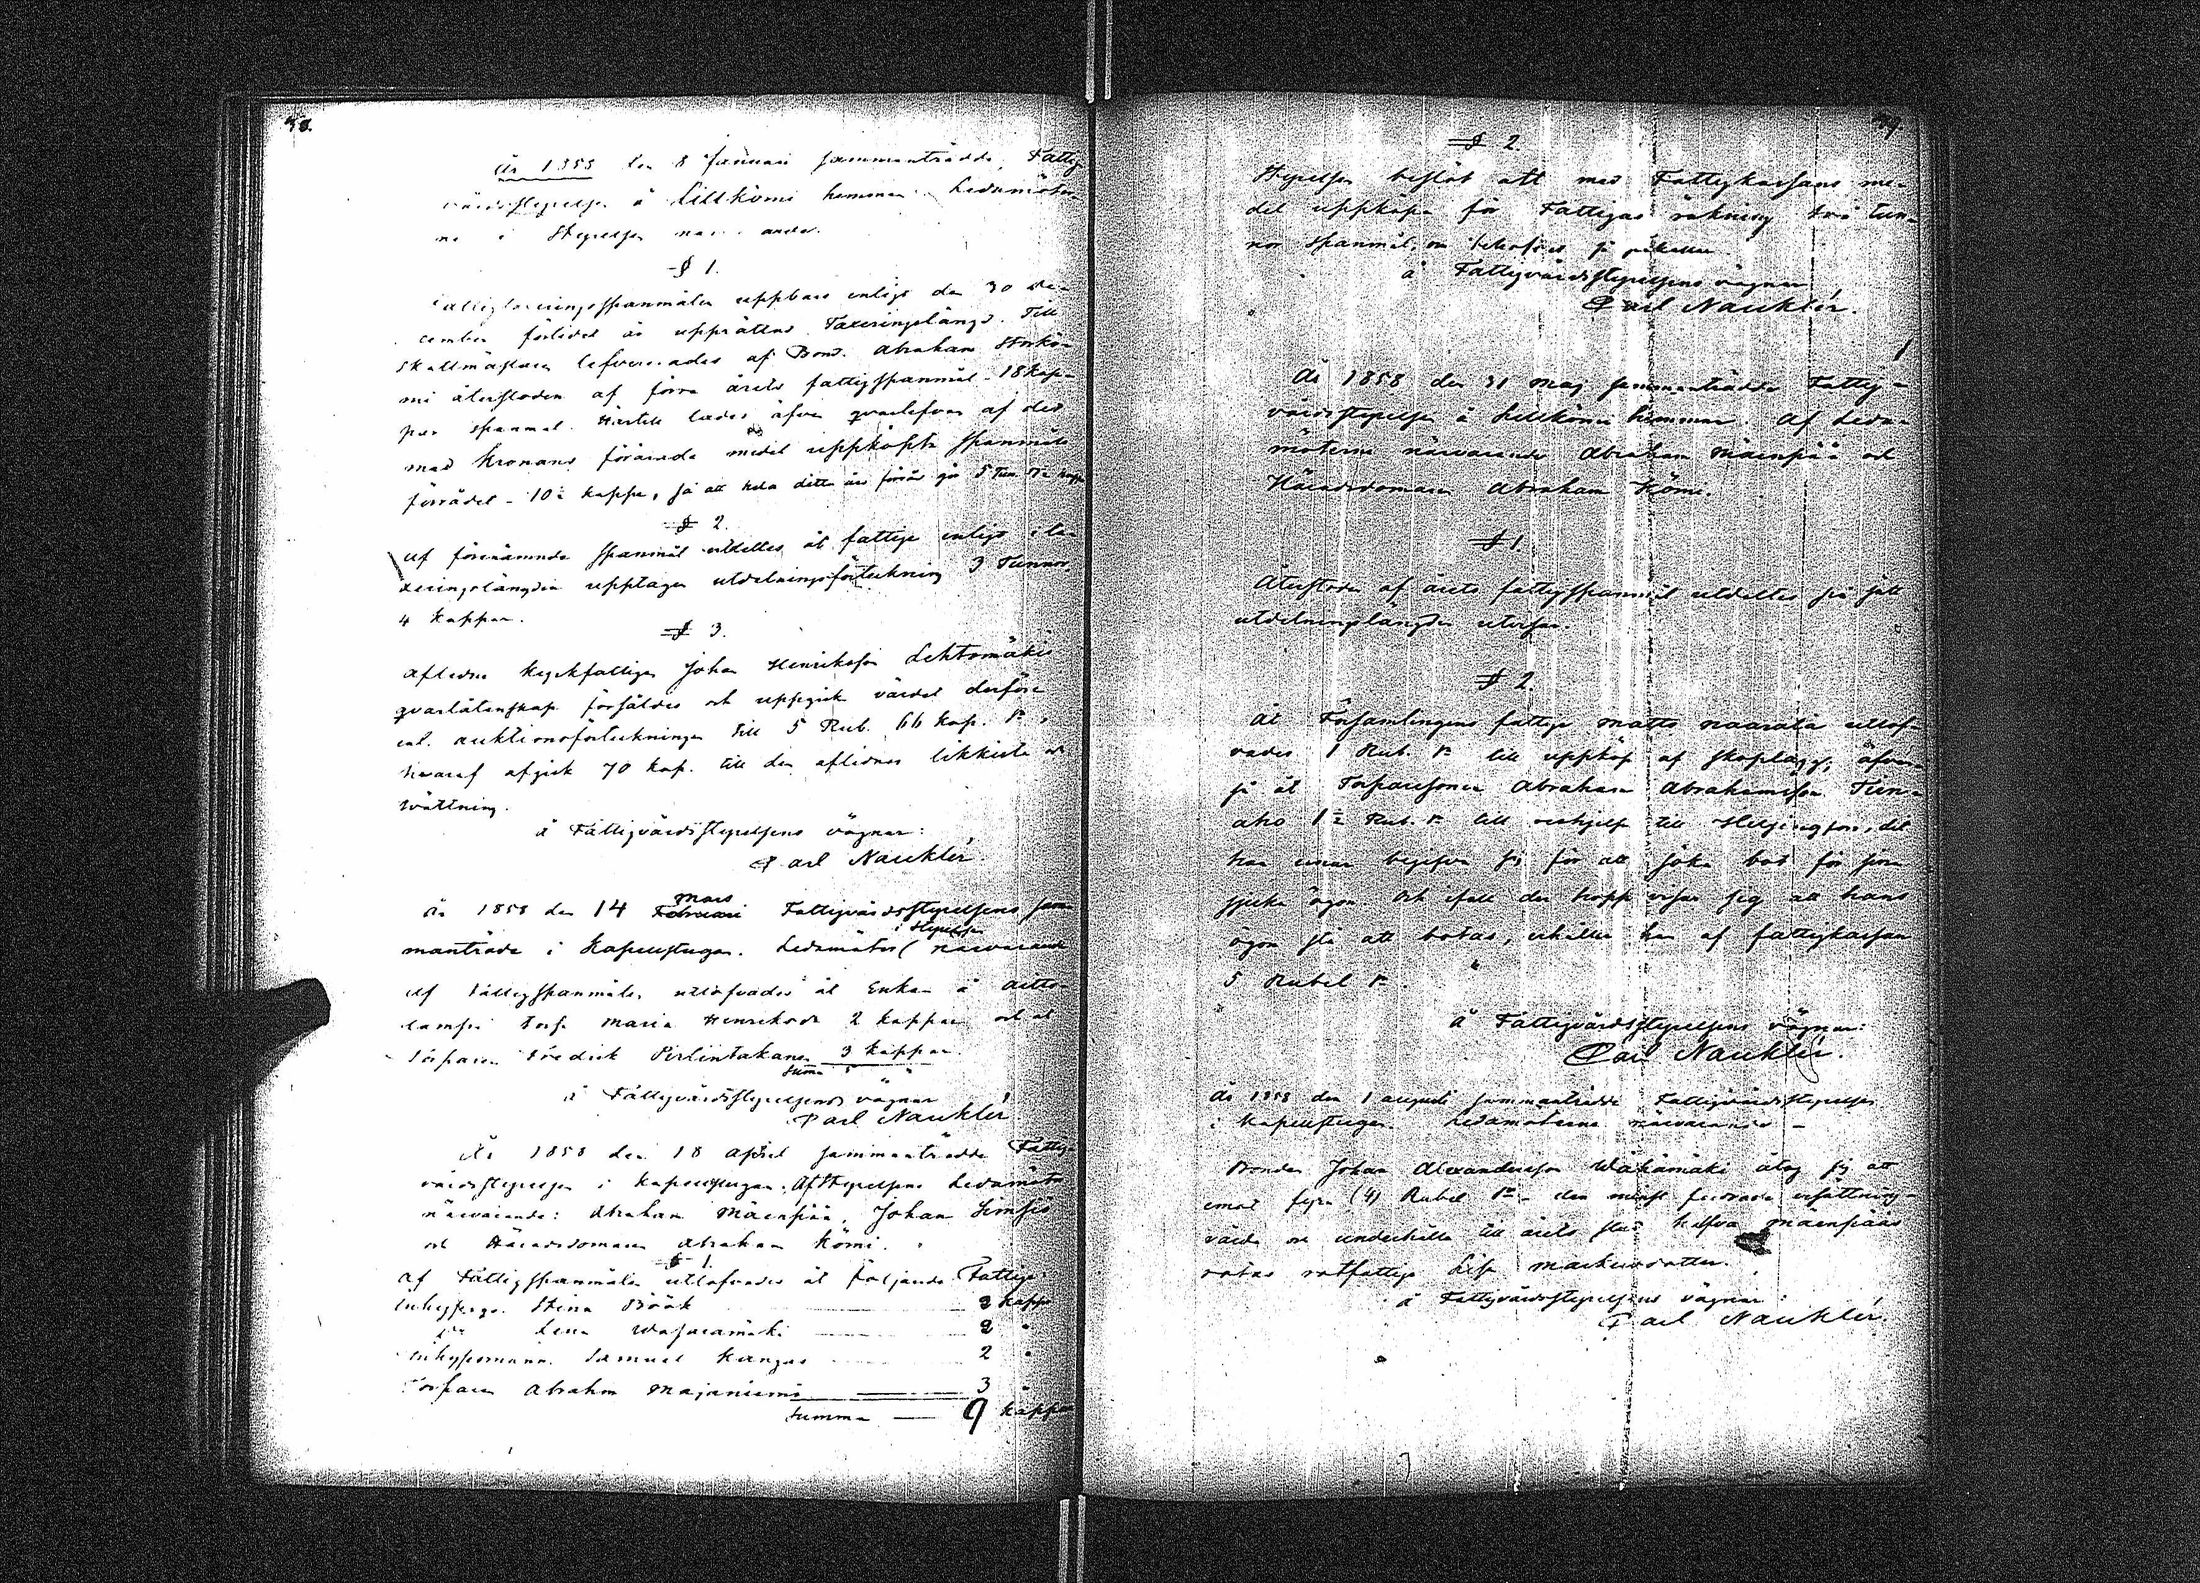 78.
År 1858 den 8 Januari sammanträdde Fattig-
vårdsstyrelsen å Lillkömi hemman. Ledamöter-
ne i Styrelsen närvarande.
§ 1.
Fattigtaxeringsspanmålen uppbars enligt den 30 De-
cember förlidet år upprättad Taxeringslängd. Till
Skallmästaren lefvererades af Bond. Abraham Storkö-
mi återstoden af förra årets fattigspanmål - 18 kap-
par spanmål. Härtill lades äfven qvarlefvan af det
med Kronans förärade medel uppköpta spanmåls
förrådet - 10½ kappe, så att hela detta års förråd
§ 2.
Af förenämnde spanmål utdeltes åt fattige enligt i ta-
xeringslängden upptagen utdelningsförteckning 3 Tunnor
4 kappar.
§ 3.
Aflidne Kyrkfattigen Johan Henriksson Lehtomäkis
qvarlåtenskap försåldes och uppgick värdet derföre
enl. auktionsförteckningen till 5 Rub. 66 kop. Sr,
hvaraf afgick 70 kop. till den aflidnes likkista och
tvättning.
å Fattigvårdsstyrelsens vägnar:
Carl Nauklér.
År 1858 den 14 Februari Mars Fattigvårdsstyrelsens sam-
manträde i Kapellstugan. Ledamöter i Styrelsen närvarande
Af Fattigspanmålen utlofvades åt Enkan å Aitto-
lampi torp Maria Henriksdr 2 kappar och åt
Torparen Fredrik Pirlintakanen 3 kappar.
Summa 5 "
å Fattigvårdsstyrelsens vägnar
Carl Nauklér.
År 1858 den 18 April sammanträdde Fattig-
vårdsstyrelsen i Kapellstugan. Af Styrelsens Ledamöter
närvarande: Abraham Mäenpää, Johan Simsiö
och Häradsdomaren Abraham Kömi.
§ 1.
Af Fattigspanmålen utlofvades åt följande Fattige:
Inhyseqv. Stina Böök 2 kappar
do Lena Wasaramäki 2 "
Inhysesmann. Samuel Kangas 2 "
Torparen Abraham Majaniemi 3 "
Summa — 9 kappar
79.
§ 2.
Styrelsen beslöt att med Fattigkassans me-
del uppköpa för Fattigas räkning två tun-
nor spanmål, om behofvet så påkallar.
å Fattigvårdsstyrelsens vägnar
Carl Nauklér.
År 1858 den 31 Maj sammanträdde Fattig-
vårdsstyrelsen å Lillkömi hemman. Af Leda-
möterne närvarande Abraham Mäenpää och
Häradsdomaren Abraham Kömi.
§ 1.
Återstoden af årets fattigspanmål utdeltes på sätt
utdelningslängden utvisar.
§ 2.
Åt Församlingens fattige Matts Naarala utlof-
vades 1 Rub. Sr till uppköp af skoplagg, äfven
så åt Torparesonen Abraham Abrahamsson Tun-
aho 1½ Rub. Sr till reshjelp till Helsingfors, dit
han ernar begifva sig för att söka bot för sina
sjuka ögon. Och ifall det hopp visar sig att hans
ögon stå att botas, erhåller han af fattigkassan
5 Rubel Sr.
å Fattigvårdsstyrelsens vägnar:
Carl Nauklér.
År 1858 den 1 Augusti sammanträdde Fattigvårdsstyrelsen
i Kapellstugan. Ledamöterne närvarande -
Bonden Johan Alexandersson Wähämäki åtog sig att
emot fyra (4) Rubel Sr - den minst fordrade ersättning -
vårda och underhålla till årets slut halfva Mäenpääs
rotas rotfattige Lisa Markusdotter.
å Fattigvårdsstyrelsens vägnar
Carl Nauklér